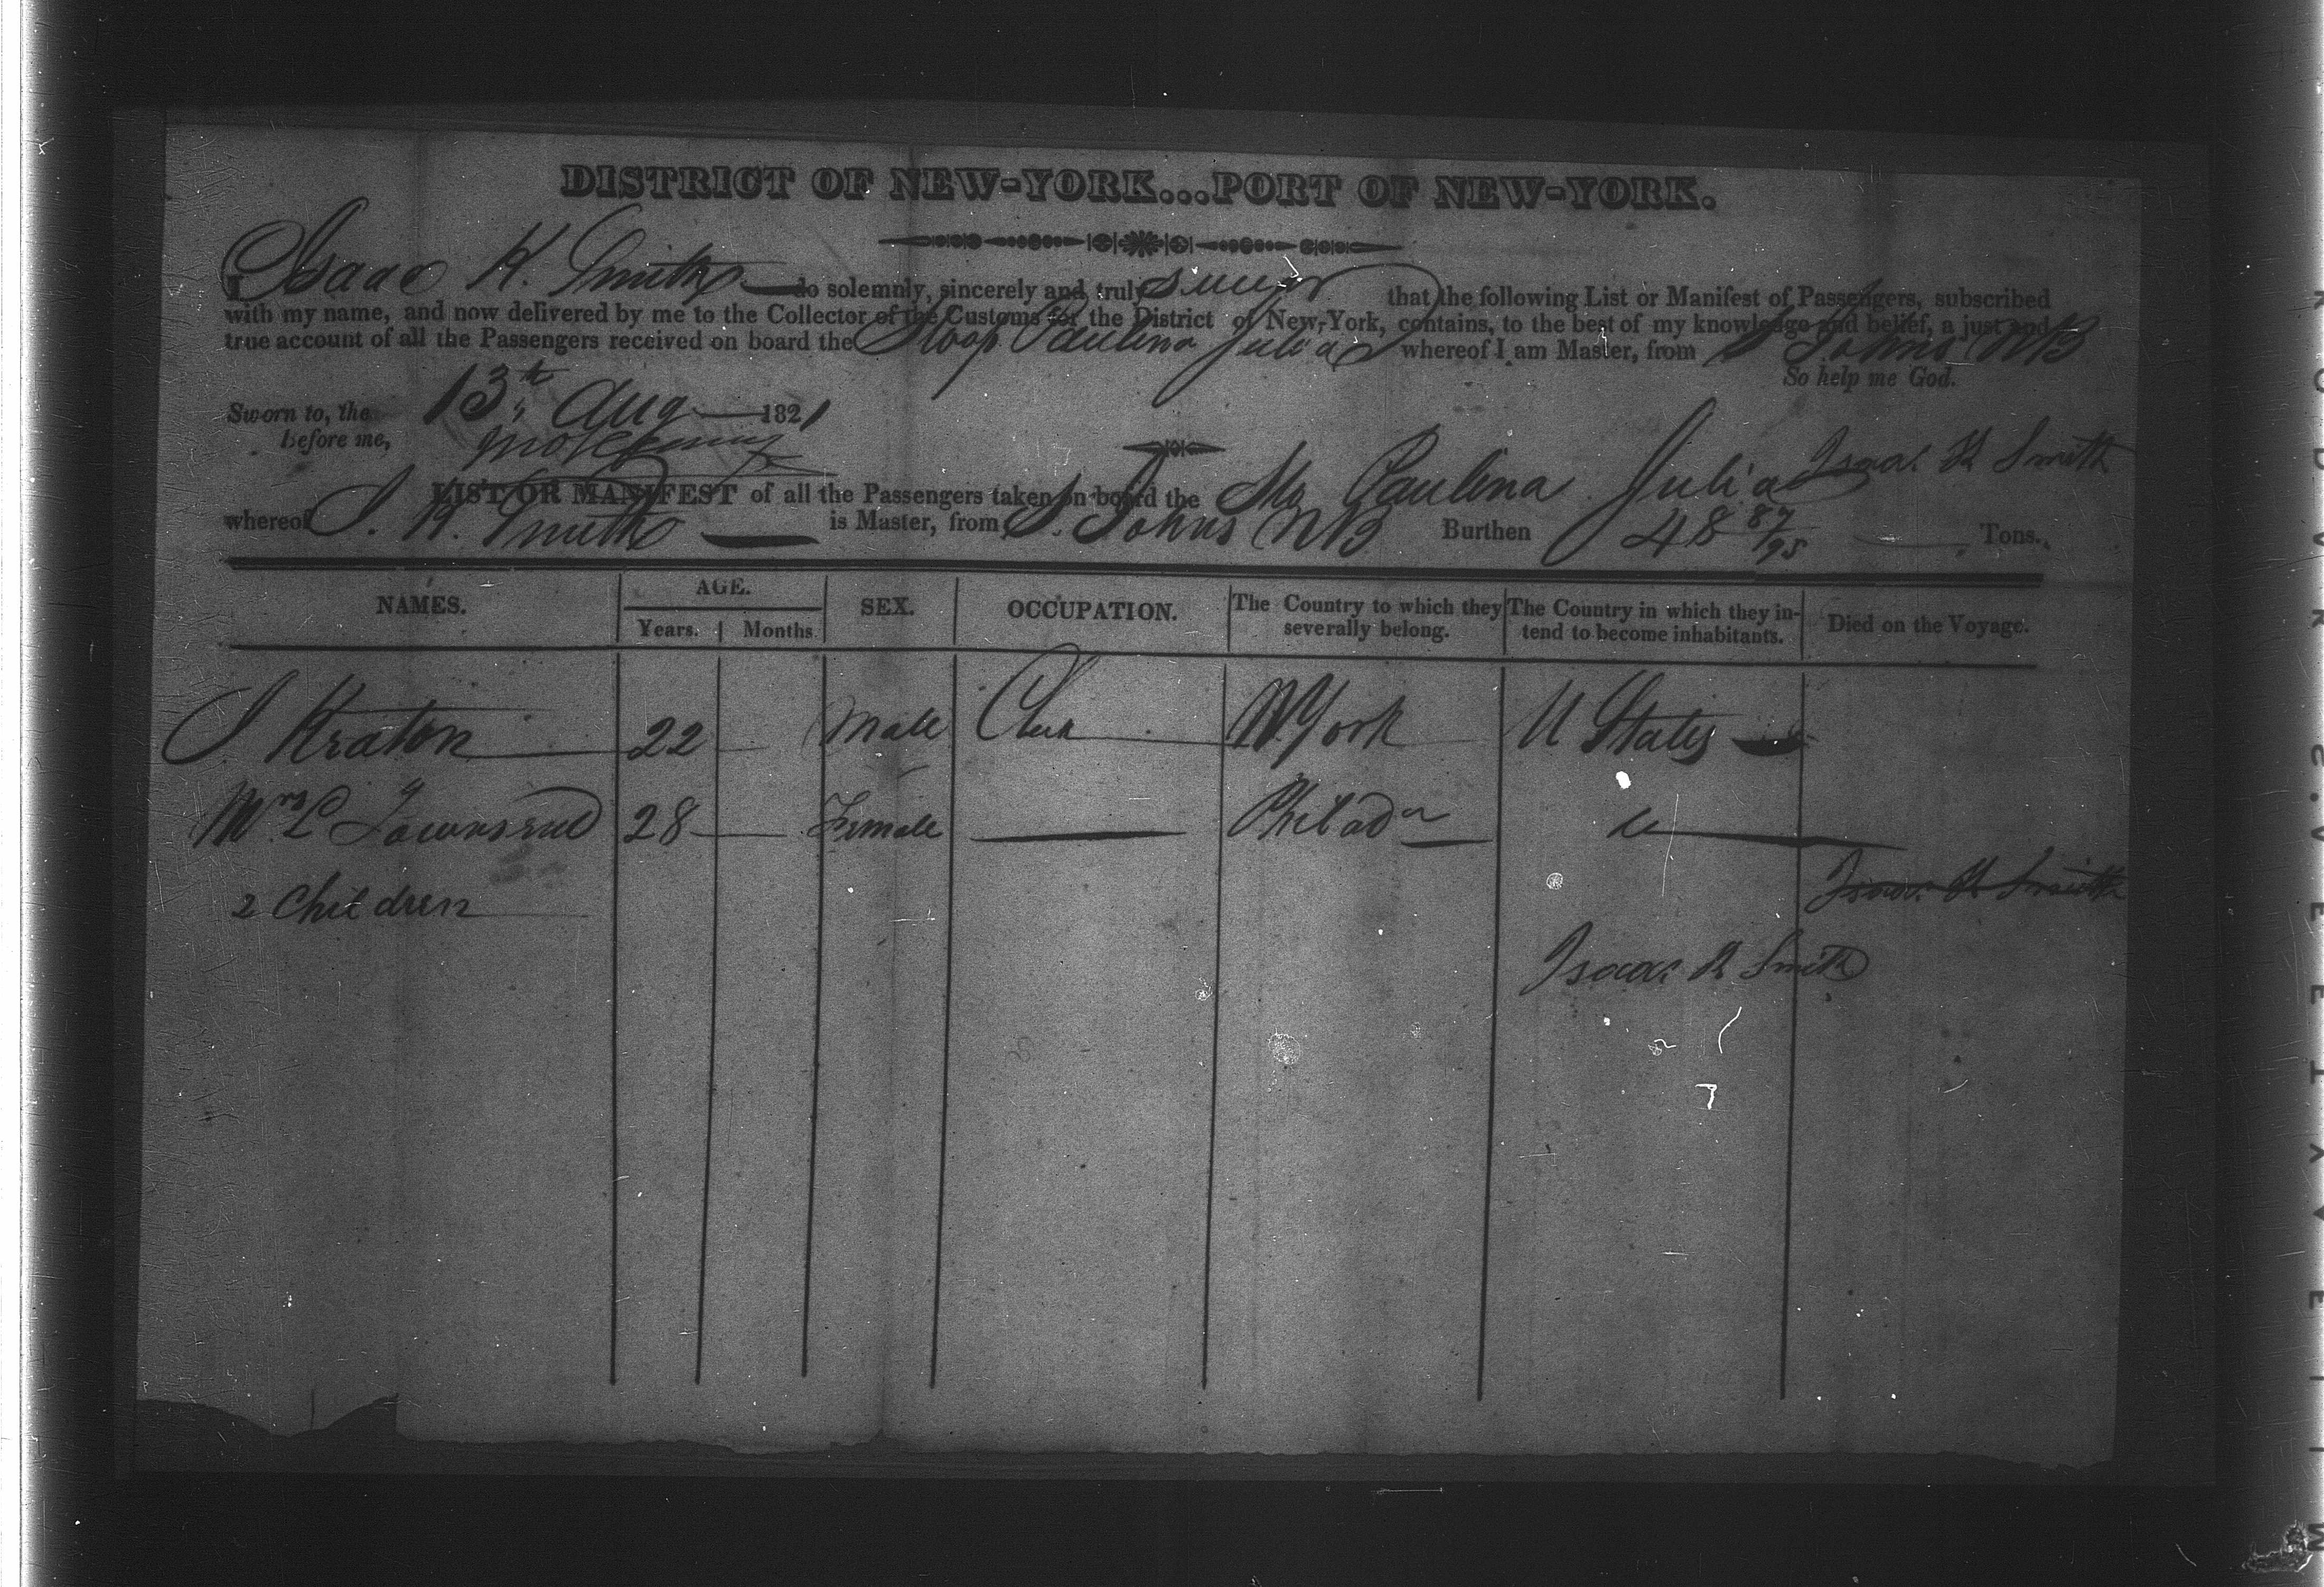 DISTRICT OF NEW-YORK...PORT OF NEW-YORK.
I Isaac K. Smith do solemnly, sincerely and truly swear that the following List or Manifest of Passengers, subscribed
with my name, and now delivered by me to the Collector of the Customs for the District of New-York, contains, to the best of my knowledge and belief, a just and
true account of all the Passengers received on board the Sloop Paulina Julia whereof I am Master, from St Johns NB
So help me God.
Sworn to, the 13th Aug 1821
before me,
Isaac K Smith
LIST OR MANIFEST of all the Passengers taken on board the Slo Paulina Julia
whereof I. K. Smith is Master, from St. Johns NB Burthen 48 87/95 Tons.
NAMES. AGE. SEX. OCCUPATION. The Country to which they severally belong. The Country in which they intend to become inhabitants. Died on the Voyage.
Years. Months.
J. Kraton 22 Male Clerk N. York U States
Mrs L Townsend 28 Female Philada
2 Children
Isaac K Smith
Isaac K Smith